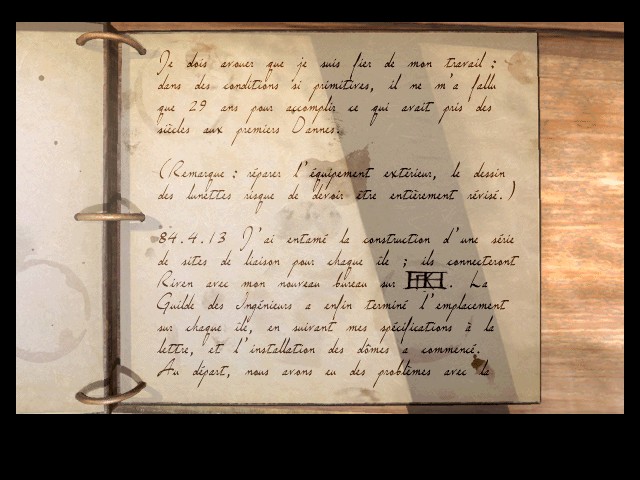 Je dois avouer que je suis fier de mon travail :
dans des conditions si primitives, il ne m'a fallu
que 29 ans pour accomplir ce qui avait pris des
siècles aux premiers D'annes.
(Remarque : réparer l'équipement extérieur, le dessin
des lunettes risque de devoir être entièrement révisé.)
84.4.13 J'ai entamé la construction d'une série
de sites de liaison pour chaque île ; ils connecteront
Riven avec mon nouveau bureau sur . La
Guilde des Ingénieurs a enfin terminé l'emplacement
sur chaque île, en suivant mes spécifications à la
lettre, et l'installation des dômes a commencé.
Au départ, nous avons eu des problèmes avec la